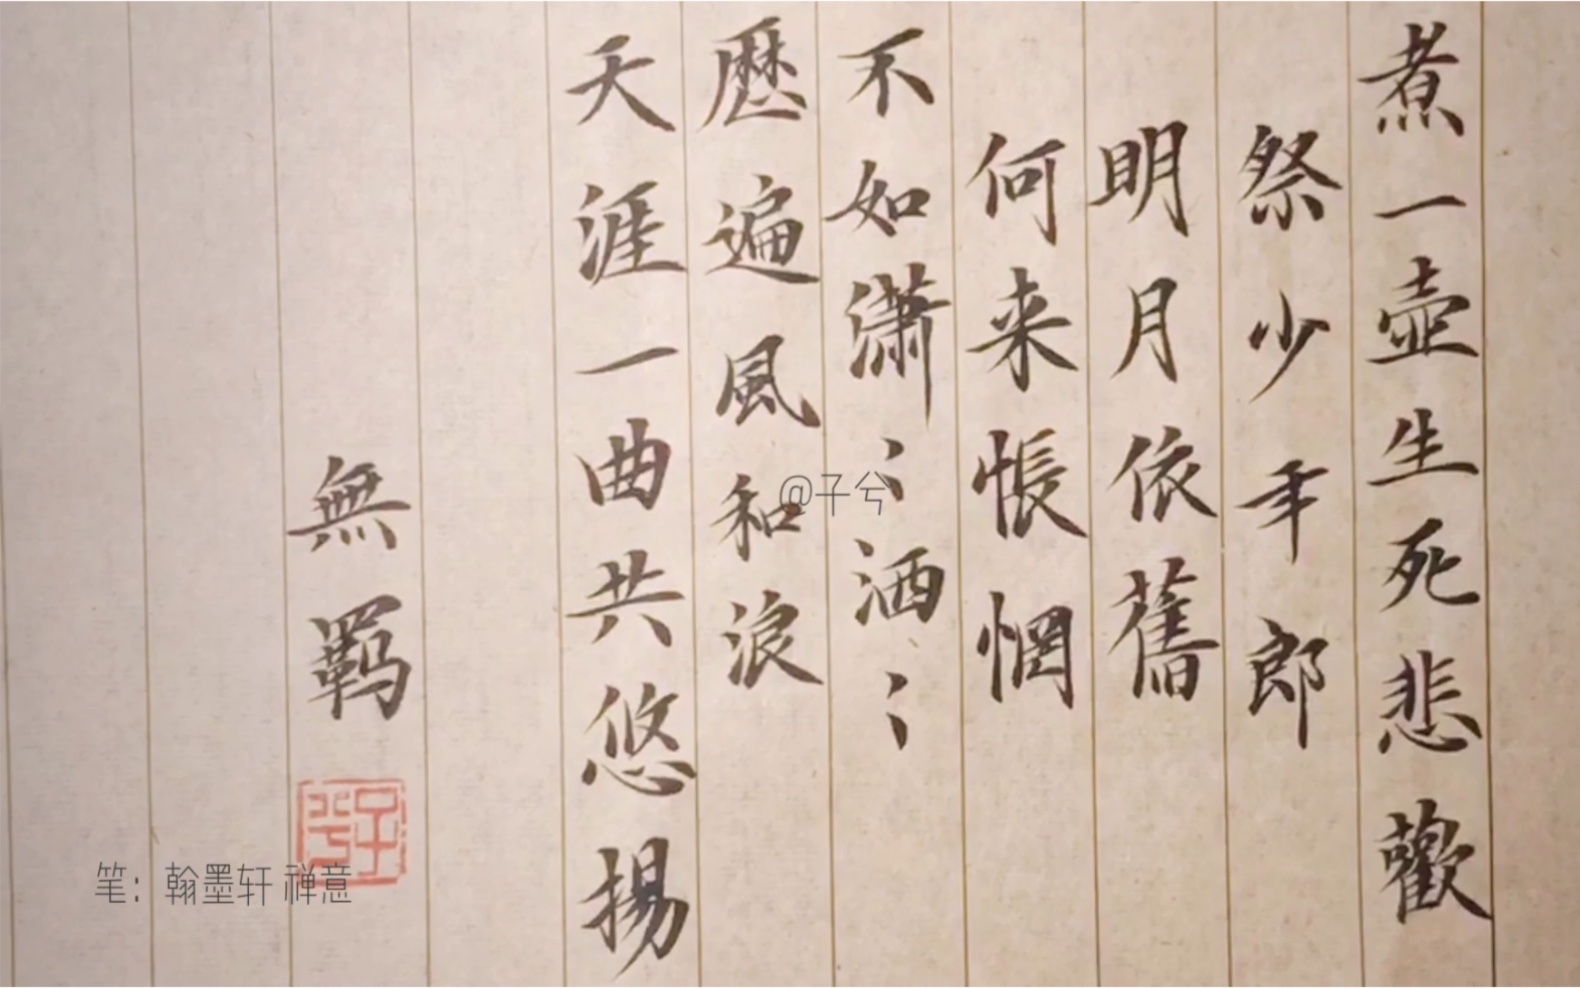 煮一壶生死悲歡
祭少年郎
明月依舊
何来悵惘
不如瀟〻洒〻
歷遍風和浪
天涯一曲共悠揚
無羁
子兮
@子兮
笔：翰墨轩 禅意